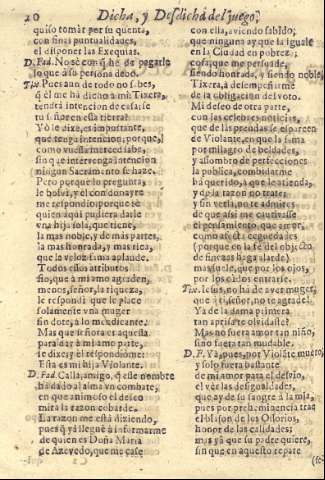 20 Dicha, y Desdicha del juego,
quiso tomar por su quenta,
con finas puntualidades,
el disponer las Exequias.
D. Fad. No sè con q̃ he de pagarle
lo que à su persona debo.
Tix. Pues aun de todo no sabes,
q̃ èl me ha dicho à mi: Tixera,
tendrà intencion de casarse
tu señor en esta tierra?
Yo le dixe, es importante,
que tenga intencion; porque,
como vuesarced sabe,
sin que intervenga intencion
ningun Sacramento se haze.
Pero porquè lo pregunta,
le bolvì, y èl con donayre
me respondiò: porque sè
quien aqui pudiera darle
vna hija sola, que tiene,
la mas noble, y de mas partes,
la mas honrada, y mas rica,
que la veloz fama aplaude.
Todos essos atributos
son, que à mi amo agraden,
menos, señor, la riqueza;
le respondì: que le place
solamente vna muger
sin dote, à lo mendicante.
Mas que si fiora vr aquesta
para dar à mi amo parte,
le dixe; y èl respondiòme:
Esta es mi hija Violante.
D. Fad. Calla, amigo, q̃ esse nombre
ha dado al alma vn combate,
en que animoso el deseo
mira la razon cobarde.
La razon me està diziendo,
pues q̃ yà lleguè à informarme
de quien es Doña Maria
de Azevedo, que me case
con ella, aviendo sabido,
que ninguna ay que la iguale
en la Ciudad en pobreza;
cosa, que me persuade,
siendo honrada, y siendo noble,
Tixera, à desempeñarme
de la obligacion del voto.
Mi deseo de otra parte,
con las celebres noticias,
que de las prendas se esparcen
de Violante, en quien la fama
por milagro de beldades,
y assombro de perfecciones
la publica, combatirme
ha querido, à que le atienda,
y dexe la razon trate;
y sin verla, no te admires,
de que assi me cautivasse
el pensamiento, que amor,
como al fin es ceguedades
(porque en la fè del objecto
de finezas haga alarde)
mas suele, que por los ojos,
por los oìdos entrarse.
Tix. Iesus, no ha de aver muger,
que señor, no te agrade?
Ya de la dama primera
tan aprisa te olvidaste?
Mas no fuera amor tan niño,
sino fuera tan mudable.
D. F. Ya, pues, por Violãte muero,
y solo fuera bastante
de mi amor para el desvio,
el vèr las desigualdades,
que ay de su sangre à la mia,
pues por preheminencia trae
el blason de los Osorios,
honor de las calidades;
mas yà que su padre quiere,
sin que en aquesto repare